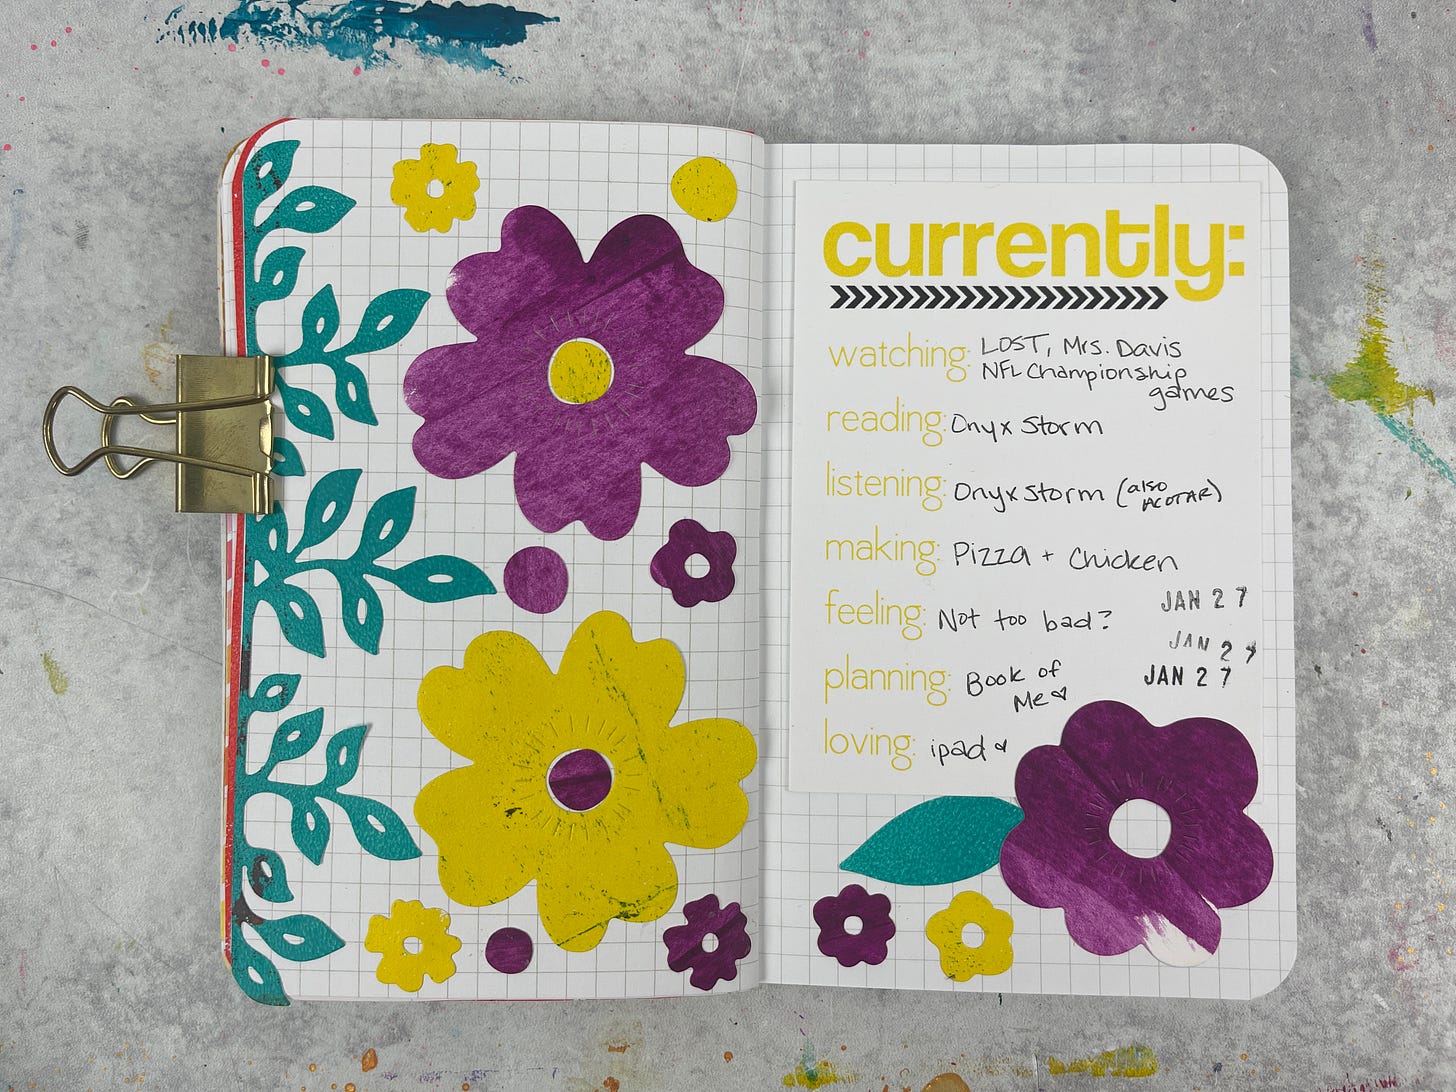 currently:
watching: LOST, Mrs. Davis
NFL Championship
games
reading: Onyx Storm
listening: Onyx Storm (also
ACOTAR)
making: Pizza + Chicken
feeling: Not too bad?
JAN 27
JAN 27
JAN 27
planning: Book of
Me
loving: ipad